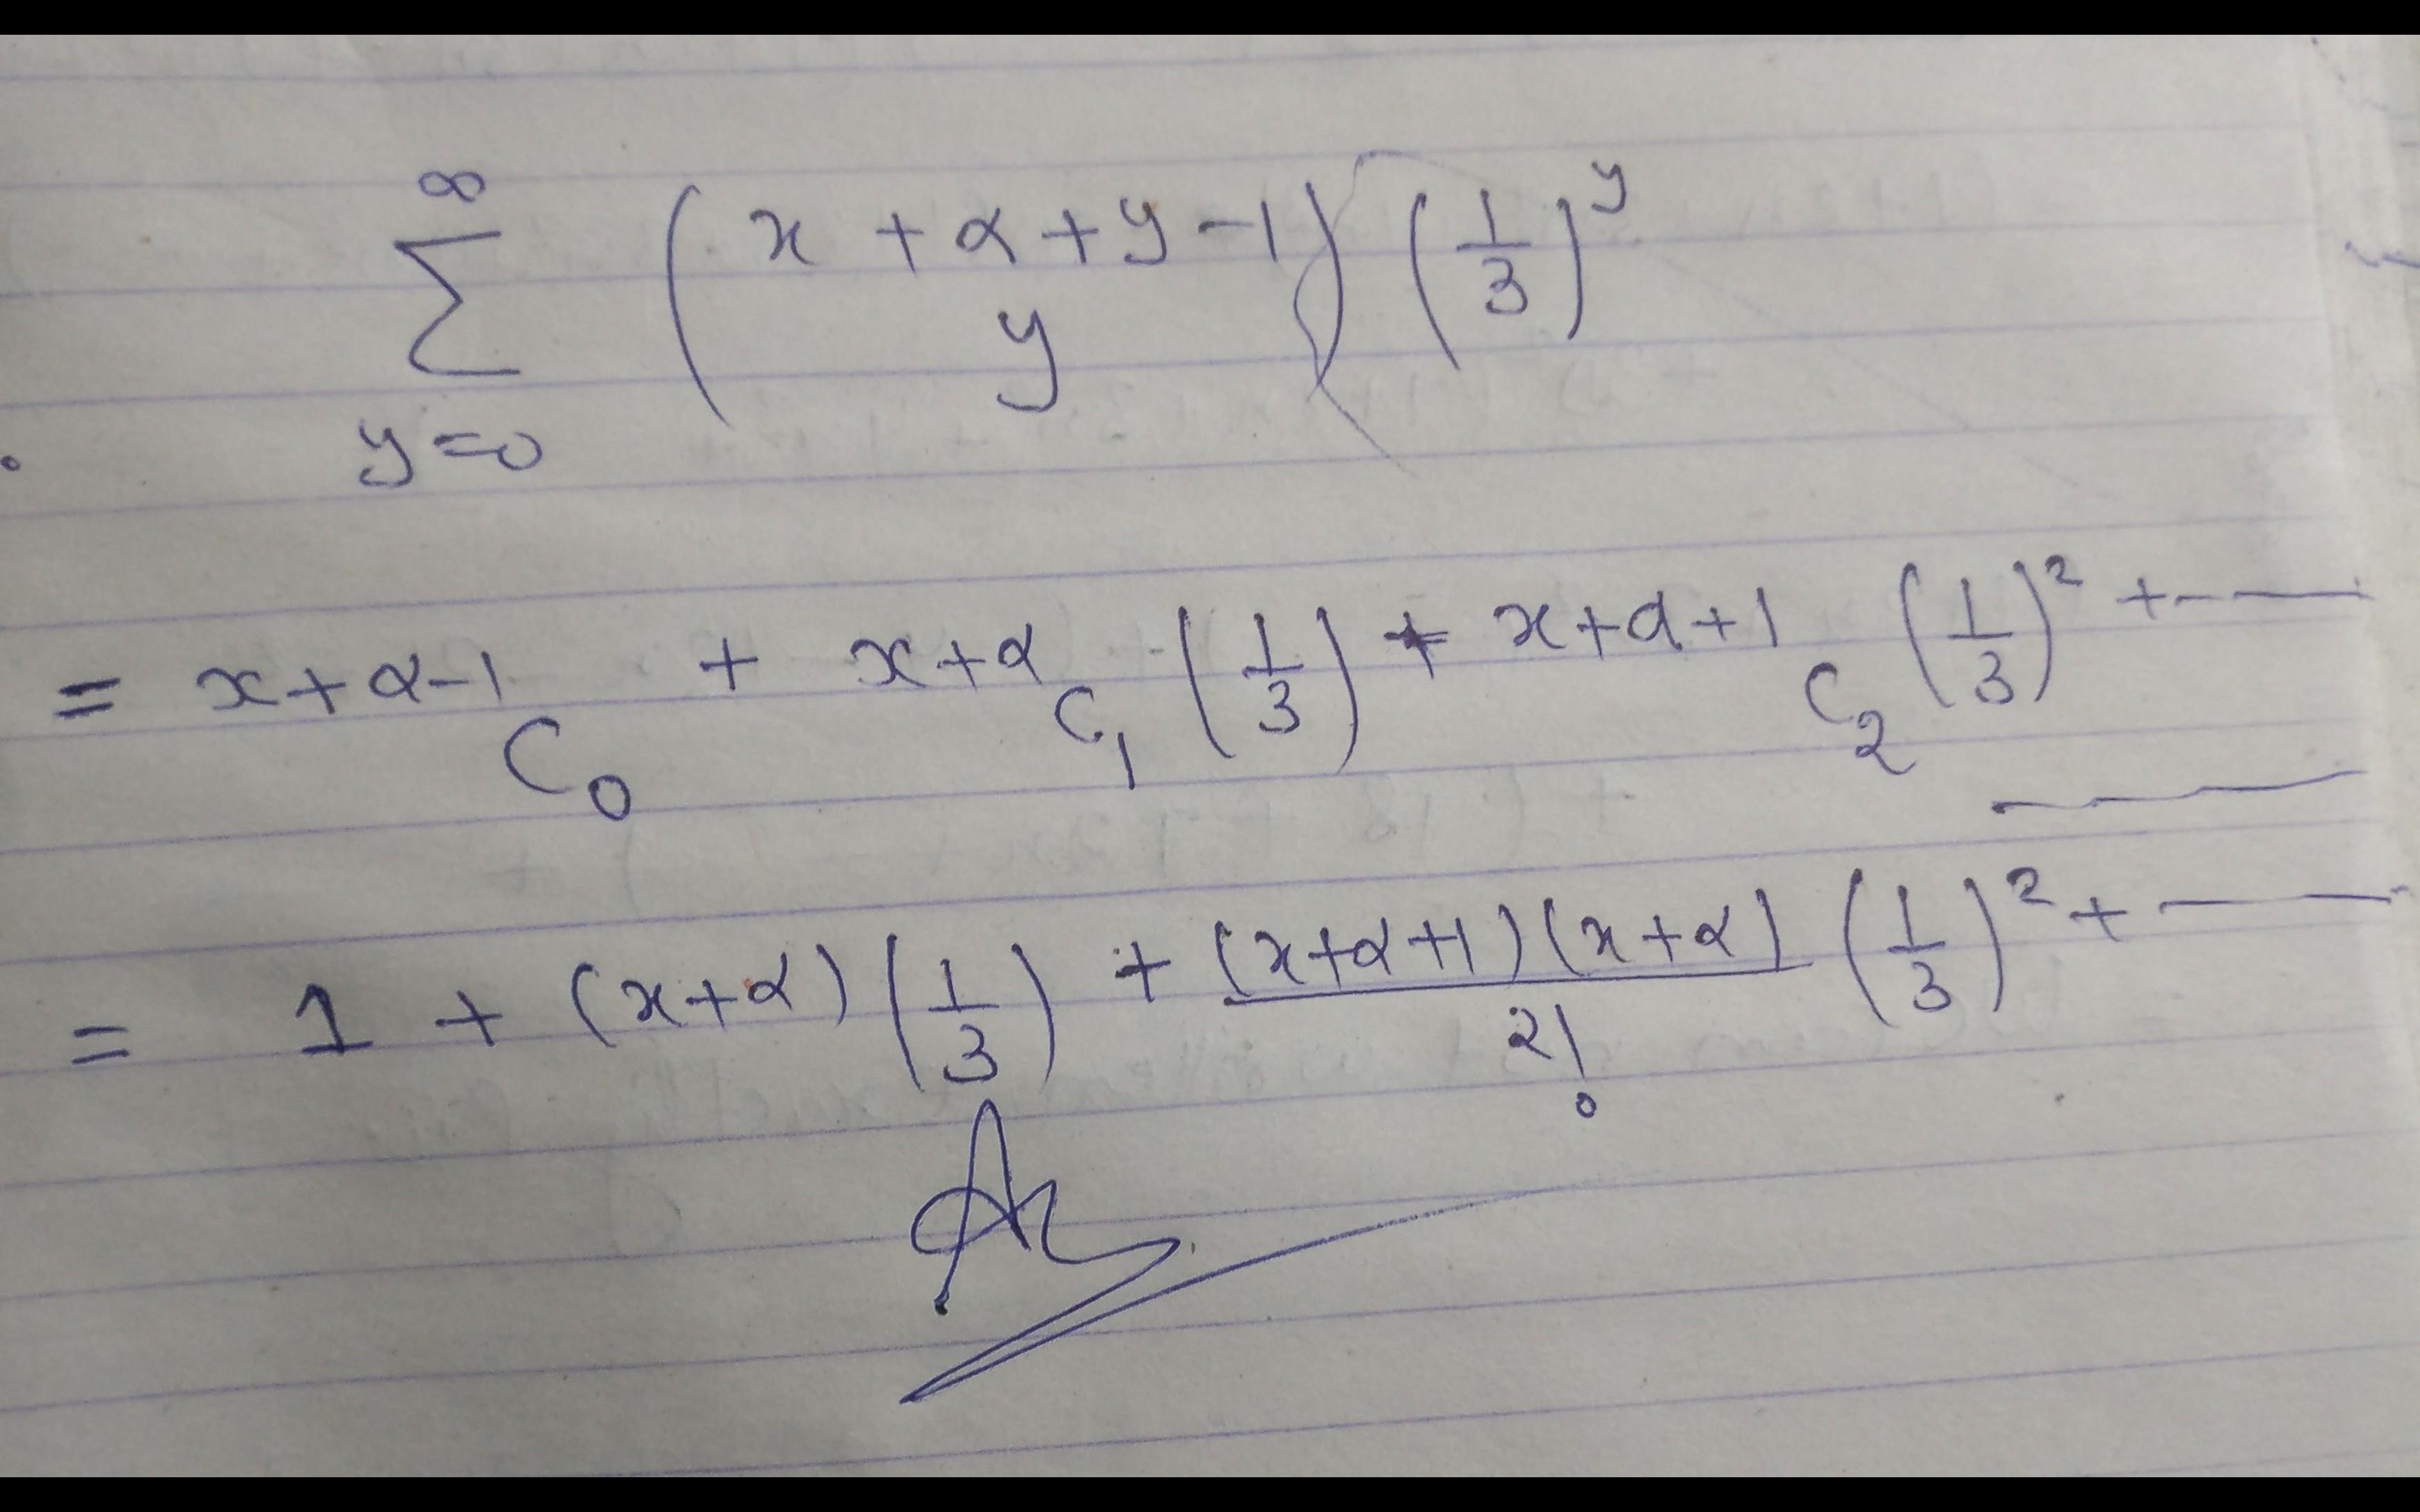 ∞
∑ (x + α + y - 1
y) (1/3)^y
y=0
= x+α-1 C₀ + x+α C₁ (1/3) + x+α+1 C₂ (1/3)² + ----
= 1 + (x+α) (1/3) + (x+α+1)(x+α)/2! (1/3)² + ----